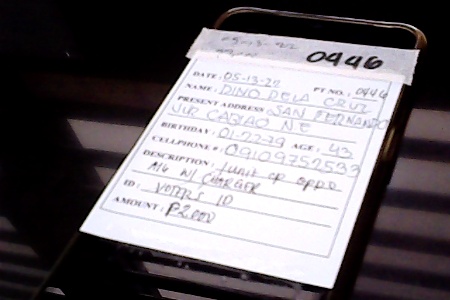 05-13-22
0446
DATE: 05-13-22 PT NO.: 0446
NAME: DINO DELA CRUZ
PRESENT ADDRESS SAN FERNANDO
SUR CABIAO NE
BIRTHDAY: 01-27-79 AGE: 43
CELLPHONE #: 09109752533
DESCRIPTION: 1 unit of oppo
A16 W/ CHARGER
ID: VOTERS ID
AMOUNT: ₱2,000